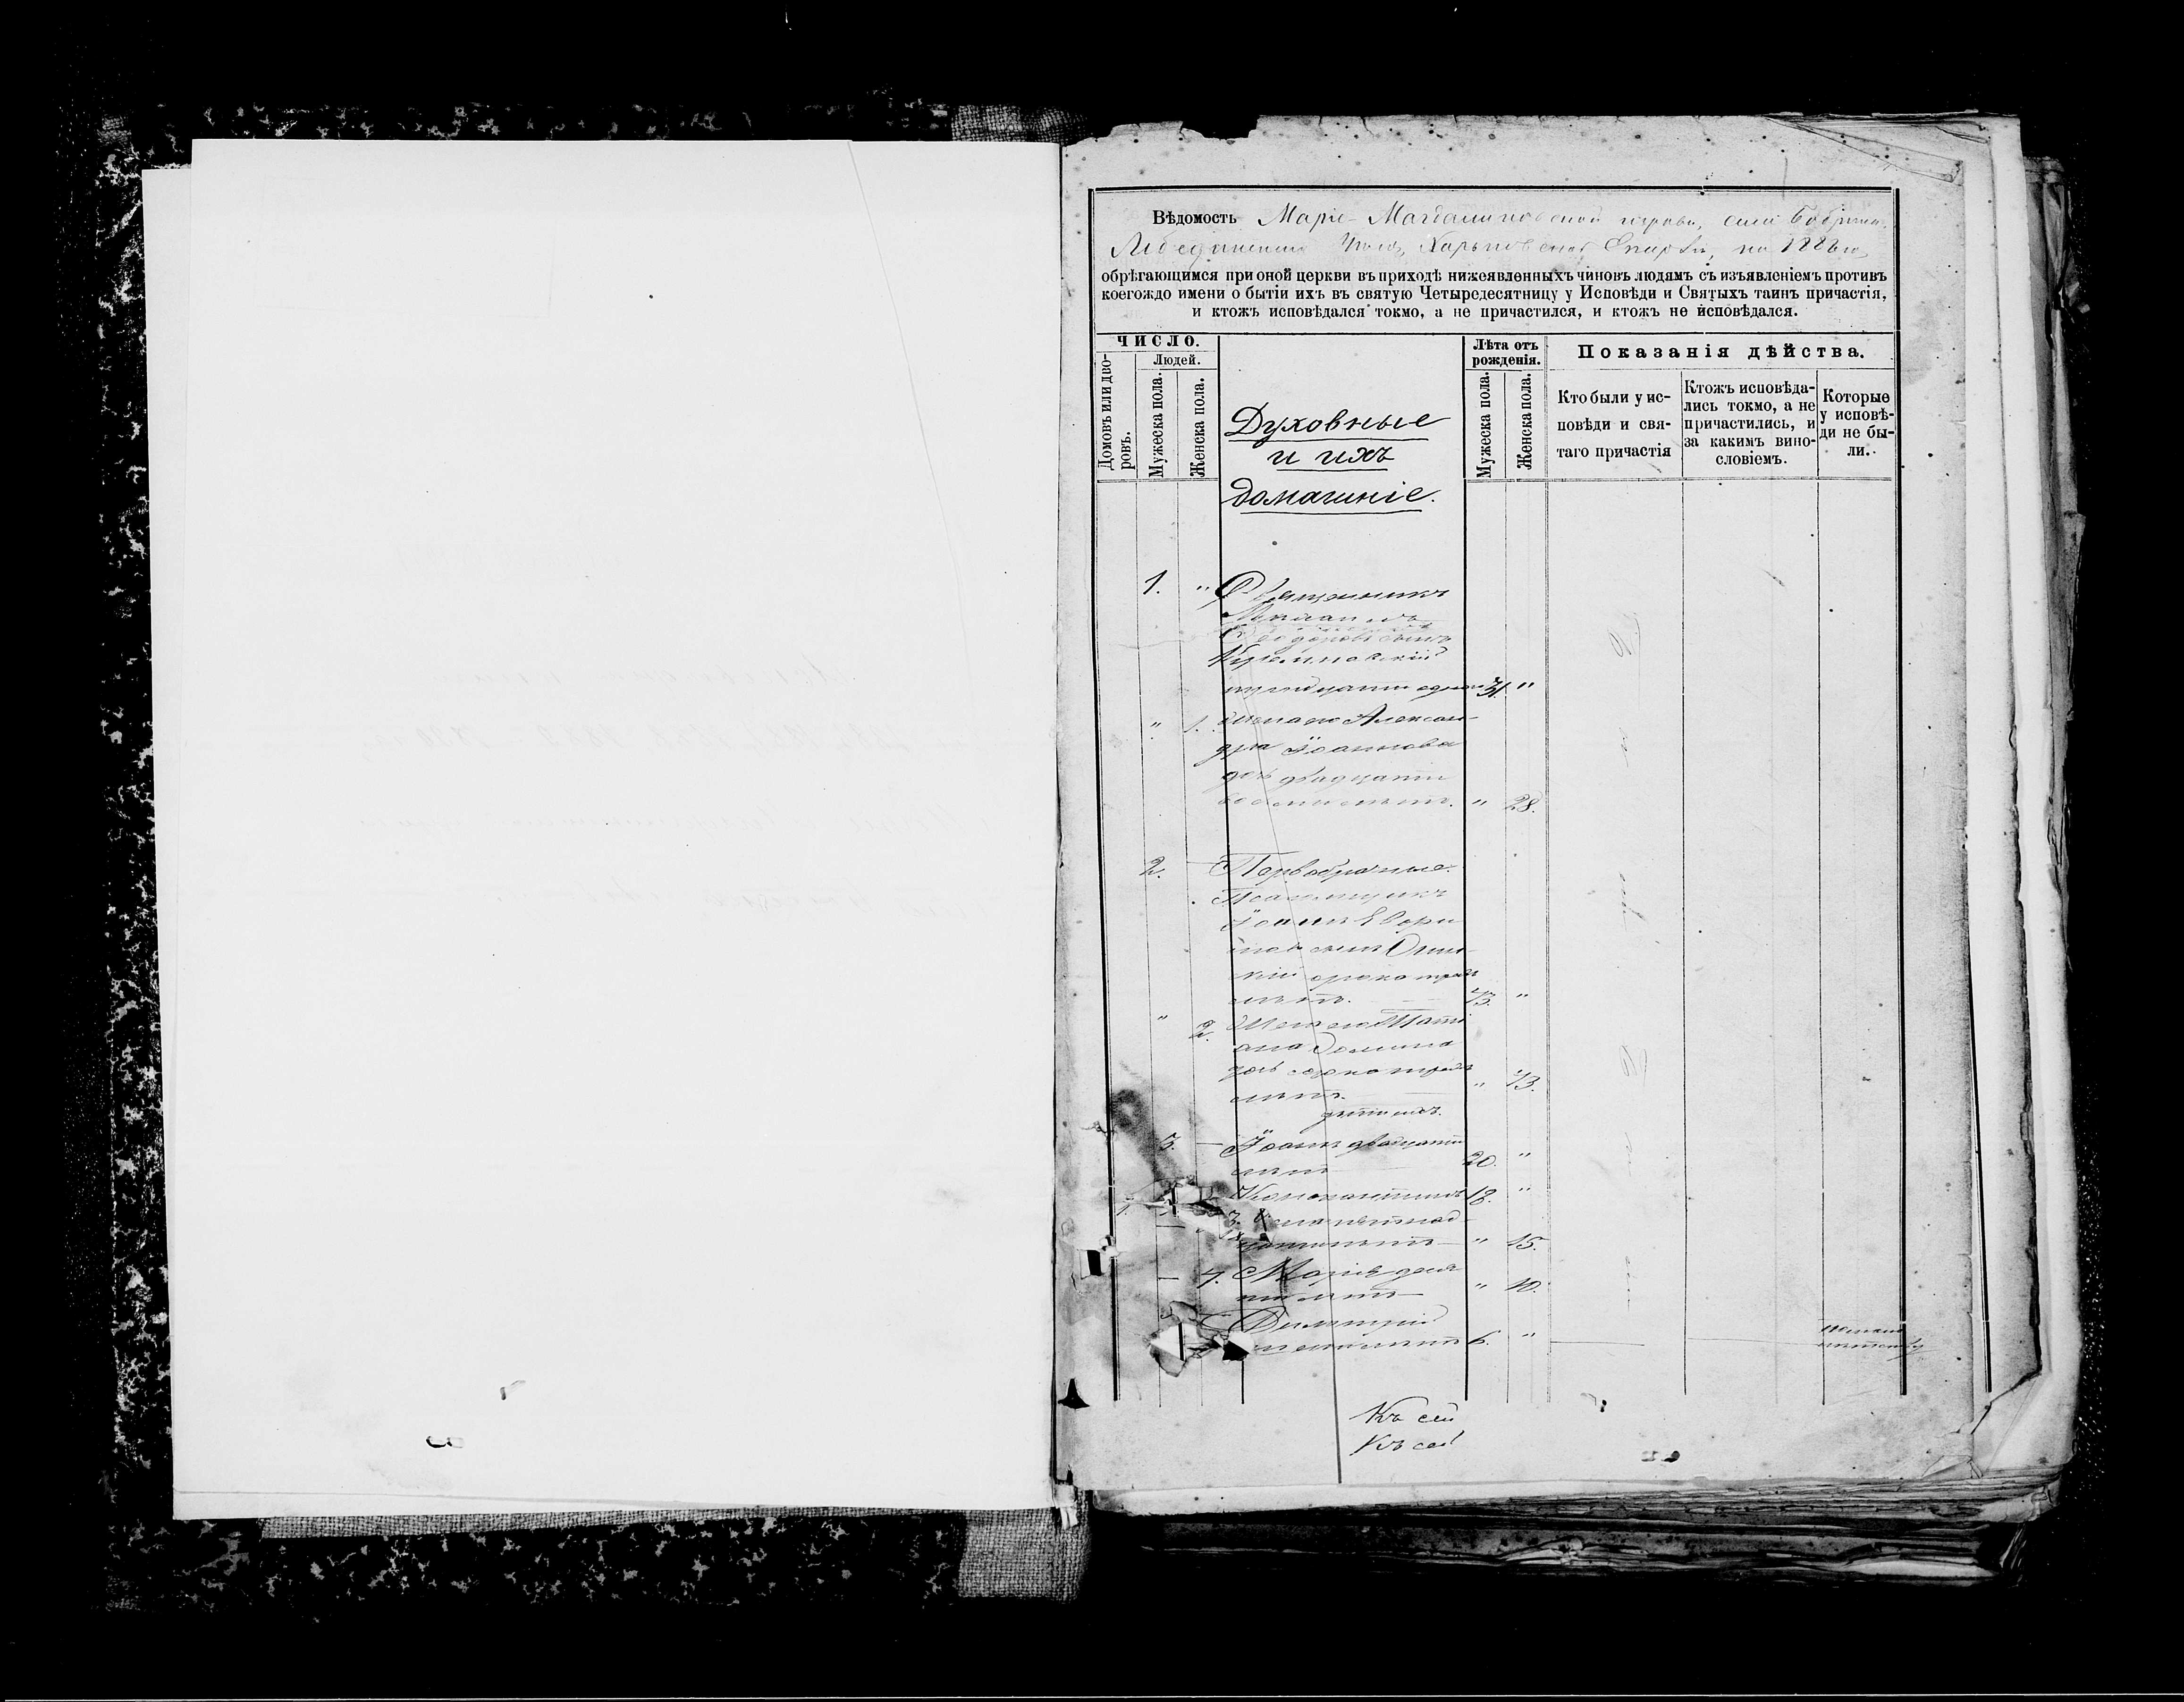 Вѣдомость Маріе-Магдалиновской церкви, села Бобрика,
Лебединскаго Уѣзда, Харьковской Епархіи, на 1886 г.
обрѣтающимся при оной церкви въ приходѣ нижеявленныхъ чиновъ людямъ съ изъявленіемъ противъ
коегождо имени о бытіи ихъ въ святую Четыредесятницу у Исповѣди и Святыхъ таинъ причастія,
и ктожъ исповѣдался токмо, а не причастился, и ктожъ не исповѣдался.
ЧИСЛО.
Домовъ или дво-
ровъ.
Людей.
Мужеска пола.
Женска пола.
Духовные
и ихъ
домашніе.
Лѣта отъ
рожденія.
Мужеска пола.
Женска пола.
Показанія дѣйства.
Кто были у ис-
повѣди и свя-
таго причастія
Ктожъ исповѣда-
лись токмо, а не
причастились, и
за какимъ вино-
словіемъ.
Которые
у исповѣ-
ди не бы-
ли.
1. " Священникъ
Михаилъ
Ѳеодоровъ сынъ
тридцати одного 31. "
" 1. Жена его Алексан-
дра Іоаннова
дочь двадцати
восьми лѣтъ. " 28.
2. — Первобрачные.
Псаломщикъ
Іоаннъ
сынъ
сорока трехъ
лѣтъ. 43. "
" 2. Жена его Таті
ана
дочь сорока трехъ
лѣтъ. " 43.
дѣти ихъ.
3. — Іоаннъ двадцати
лѣтъ 20. "
Константинъ 18. "
3. пятнад-
цати лѣтъ — " 15.
— 4. Марія деся
ти лѣтъ — " 10.
Димитрій
шести лѣтъ 6. "
Къ сей
Къ сей